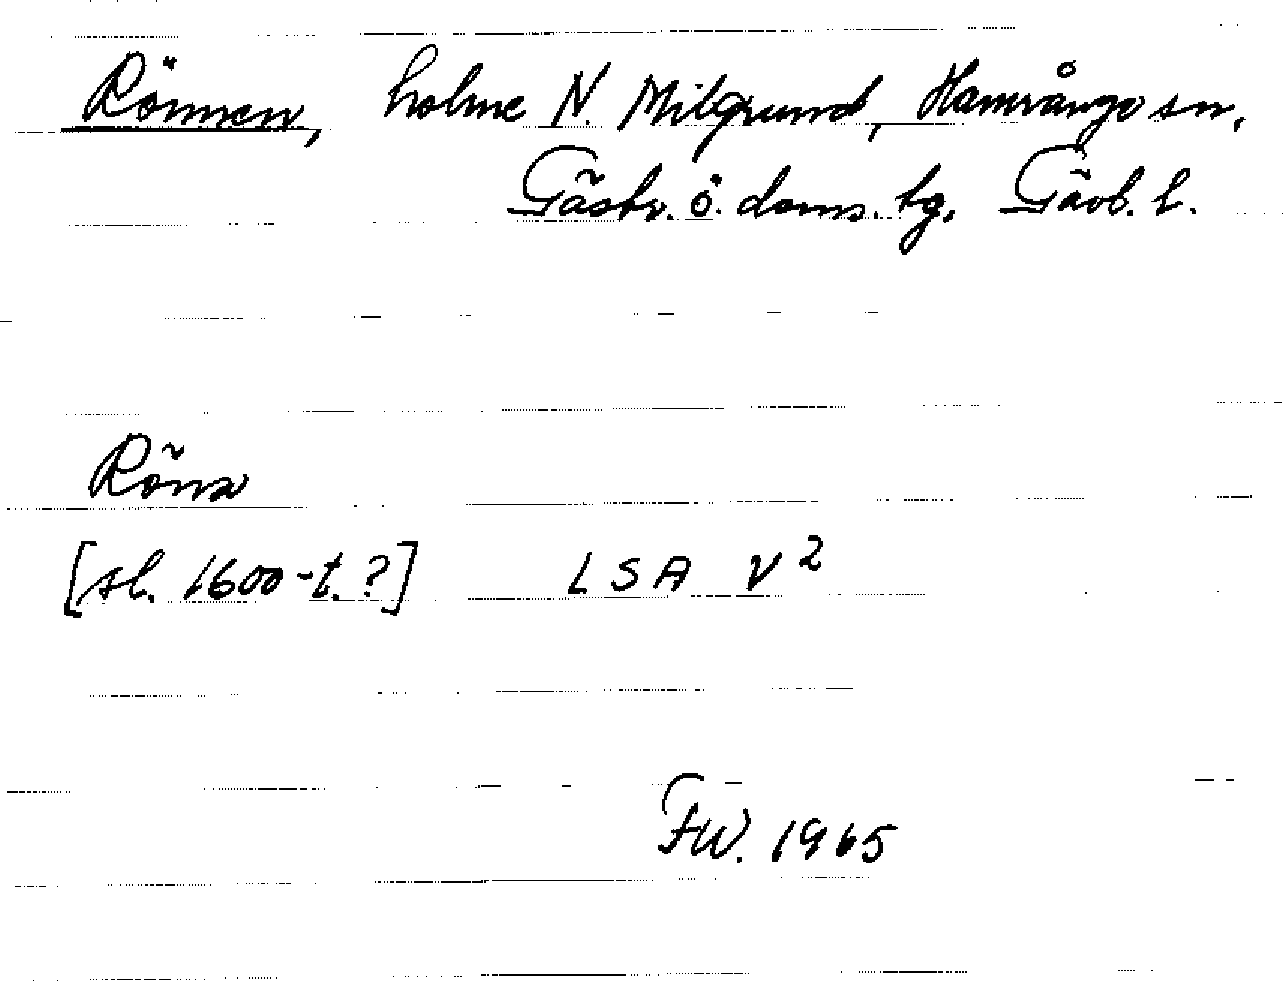 Rönnen, holme N. Milgrund, Hamrånge sn,
Gästr. ö. doms. tg, Gävl. l.
Röna
[sl. 1600-t. ?] LSA V²
FW. 1965